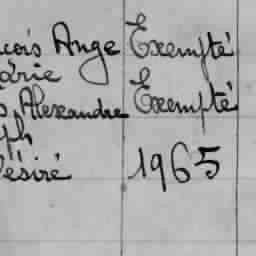 çois Ange Exempté
Marie
s Alexandre Exempté
ph
Désiré 1965